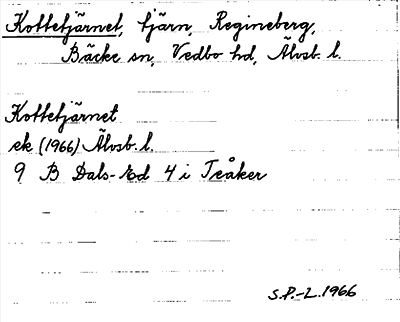 Kottetjärnet, tjärn, Regineberg,
Bäcke sn, Vedbo hd, Älvsb. l.
Kottetjärnet
ek (1966) Älvsb. l.
9 B Dals-Ed 4 i Teåker
S.P.-L. 1966